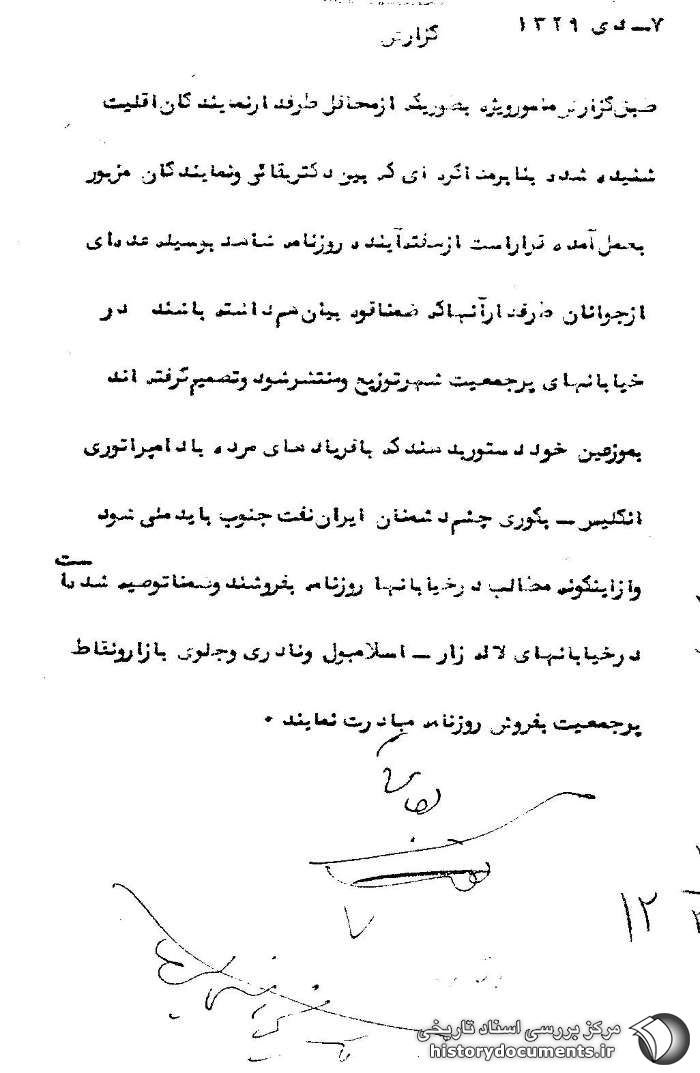 ۷ــ دی ۱۳۲۹
گزارش
طبق گزارش مامور ویژه بطوریکه از محافل طرفدار نمایندگان اقلیت
شنیده شده بنا بر مذاکره ای که بین دکتر بقائی و نمایندگان مزبور
بعمل آمده قرار است از هفته آینده روزنامه شاهد بوسیله عده ای
از جوانان طرفدار آنها که ضمنا قوه بیان هم داشته باشند در
خیابانهای پرجمعیت شهر توزیع و منتشر شود و تصمیم گرفته اند
بموزعین خود دستور بدهند که با فریاد های مرده باد امپراتوری
انگلیس ــ بکوری چشم دشمنان ایران نفت جنوب باید ملی شود
و از اینگونه مطالب در خیابانها روزنامه بفروشند و ضمنا توصیه شده است
در خیابانهای لاله زار ــ اسلامبول و نادری و جلوی بازار و نقاط
پرجمعیت بفروش روزنامه مبادرت نمایند ۰
۷
۱۲
مرکز بررسی اسناد تاریخی
historydocuments.ir